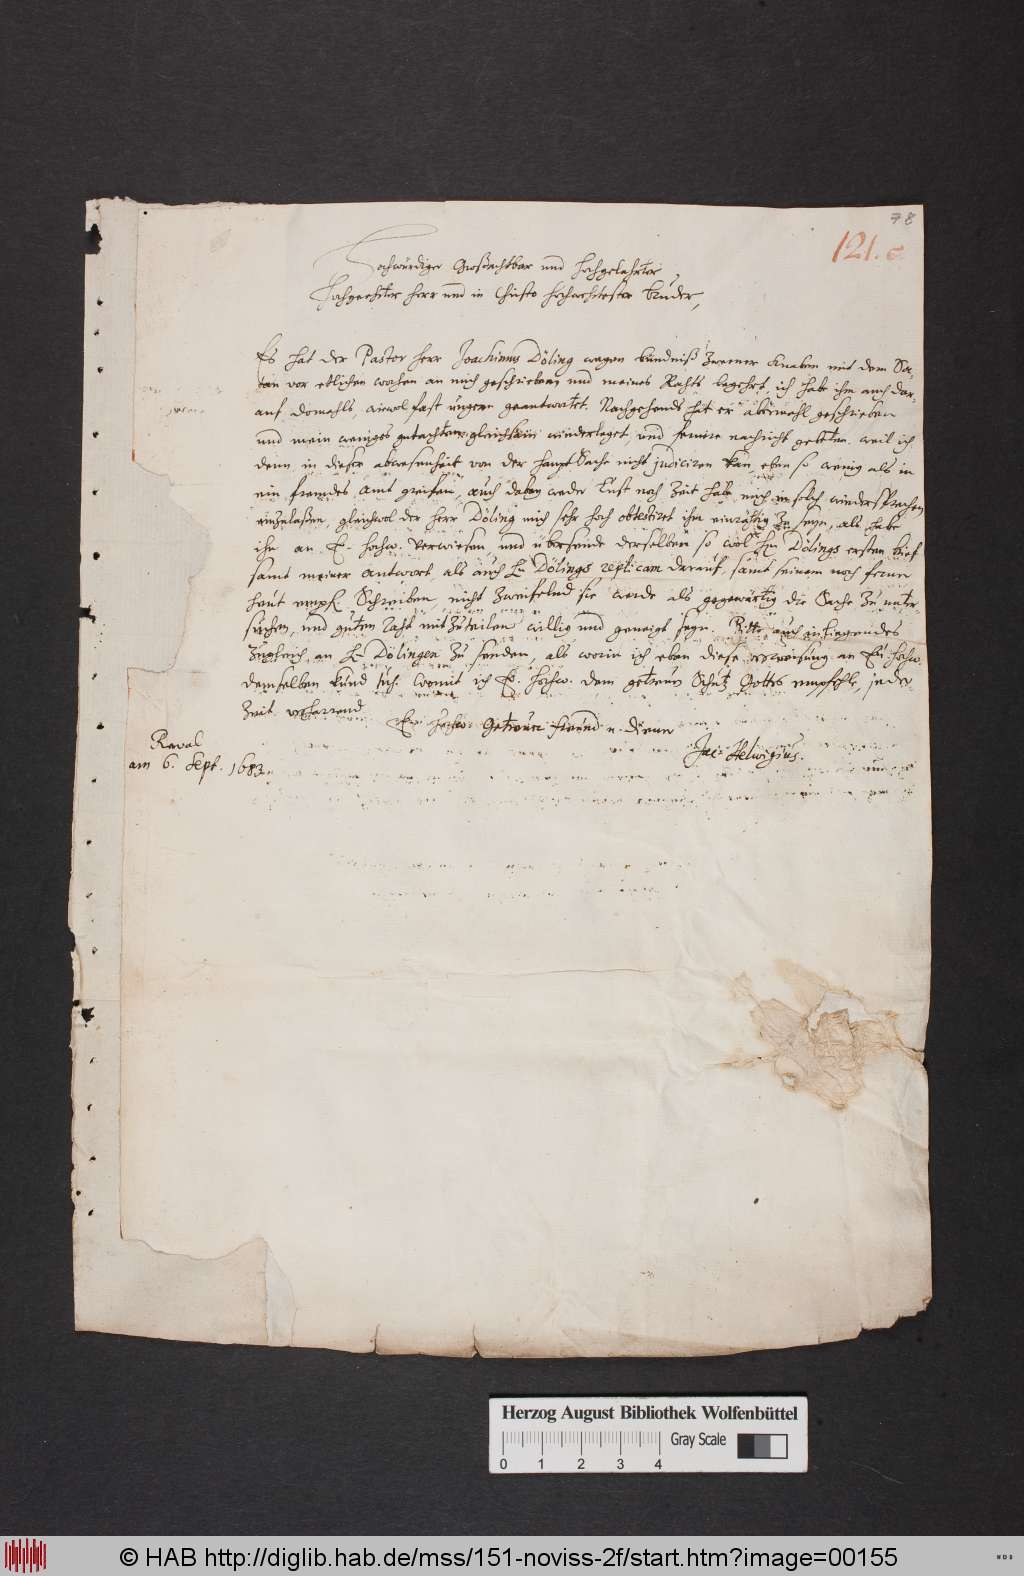 78
121. c
Hochwürdiger Großachtbar und Hochgelahrter
Hochgeehrter Herr und in Christo Hochwehrtester Bruder,
Es hat der Pastor Herr Joachimus Döling wegen bündniß zweener Knaben mit dem Sa-
tan vor etlichen wochen an mich geschrieben und meines Rahts begehrt, ich habe ihm auch dar-
auf domahls, wiewol fast ungern geantwortet. Nachgehends hat er abermahl geschrieben
und mein weniges gutachten gleichsam wiederleget und fernere nachricht gebeten. weil ich
denn in dieser abwesenheit von der Haupt Sache nicht judiciren kan, eben so wenig als in
ein frembdes Amt greifen, auch dabey weder Lust noch Zeit habe mich in solch wiedersprechen
einzulaßen, gleichwol der Herr Döling mich sehr hoch obtestiret ihm einräthig zu seyn, als habe
ihn an E. Hochw. verwiesen und übersende derselben so wol Hn Dölings ersten brief
samt meiner Antwort, als auch Hn Dölings replicam darauf, samt seinem noch ferner
heut empf. Schreiben, nicht zweifelend sie werde als gegenwärtig die Sache zu unter
suchen, und guten Raht mitzuteilen willig und geneigt seyn. Bitte auch inliegendes
zugleich an Hn Dölingen zu senden, als worin ich eben diese verweisung an Ew. Hochw.
demselben kund thu. Womit ich E. Hochw. dem getreuen Schutz Gottes empfehle, jeder
Zeit verharrend
Ew. Hochw. Getreuer freund u. diener
Jac: Helwigius.
Reval
am 6. Sept. 1683.
Herzog August Bibliothek Wolfenbüttel
Gray Scale
0 1 2 3 4
© HAB http://diglib.hab.de/mss/151-noviss-2f/start.htm?image=00155